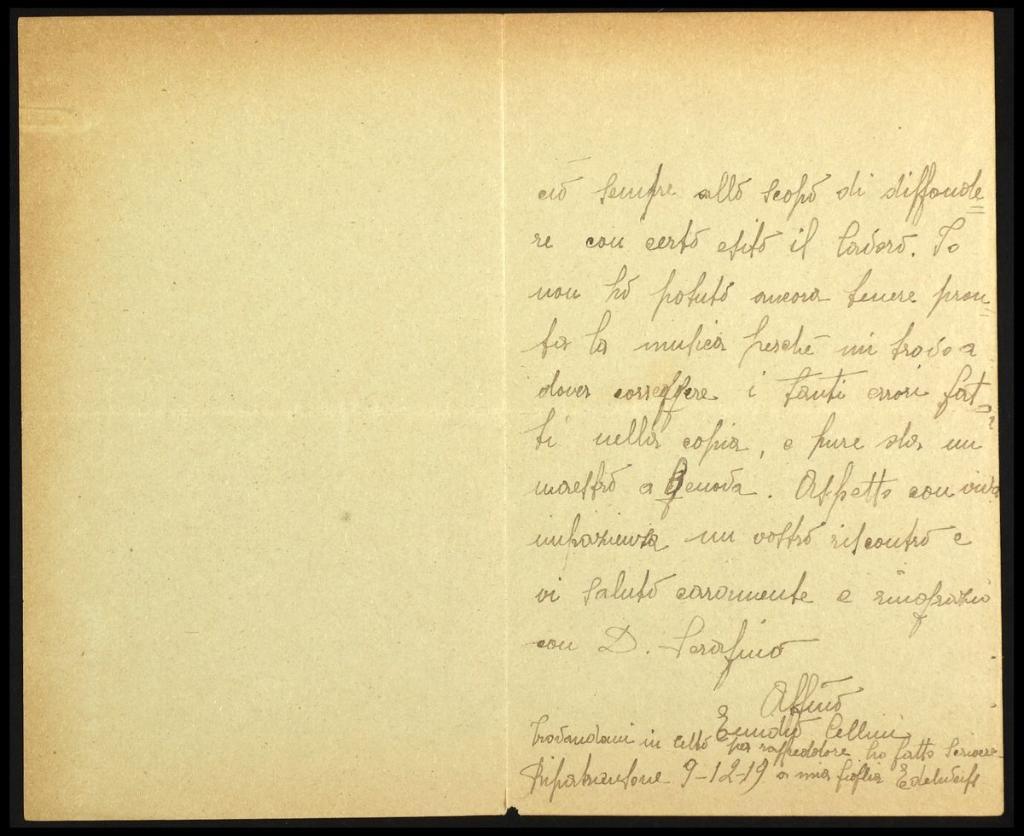 ciò sempre allo scopo di diffonde=
re con certo esito il lavoro. Io
non hò potuto ancora tenere pron=
ta la musica perchè mi trovo a
dover correggere i tanti errori fat=
ti nella copia, e pure da un
maestro a Genova. Aspetto con viva
impazienza un vostro riscontro e
vi saluto caramente e ringrazio
con D. Serafino
Affmo
Emidio Cellini
Trovandomi in letto per raffreddore ho fatto scrivere
Ripatransone 9-12-19 a mia figlia Edelweifs